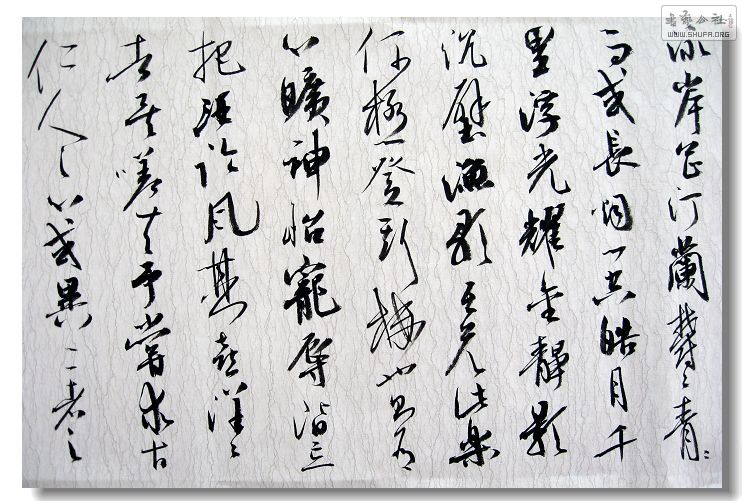 泳岸芷汀蘭鬱〻青〻
而或長煙一空皓月千
里浮光耀金靜影
沉璧漁歌互答此樂
何極登斯樓也則有
心曠神怡寵辱偕忘
把酒臨風其喜洋〻
者矣嗟夫予嘗求古
仁人之心或異二者之
書藝公社
WWW.SHUFA.ORG